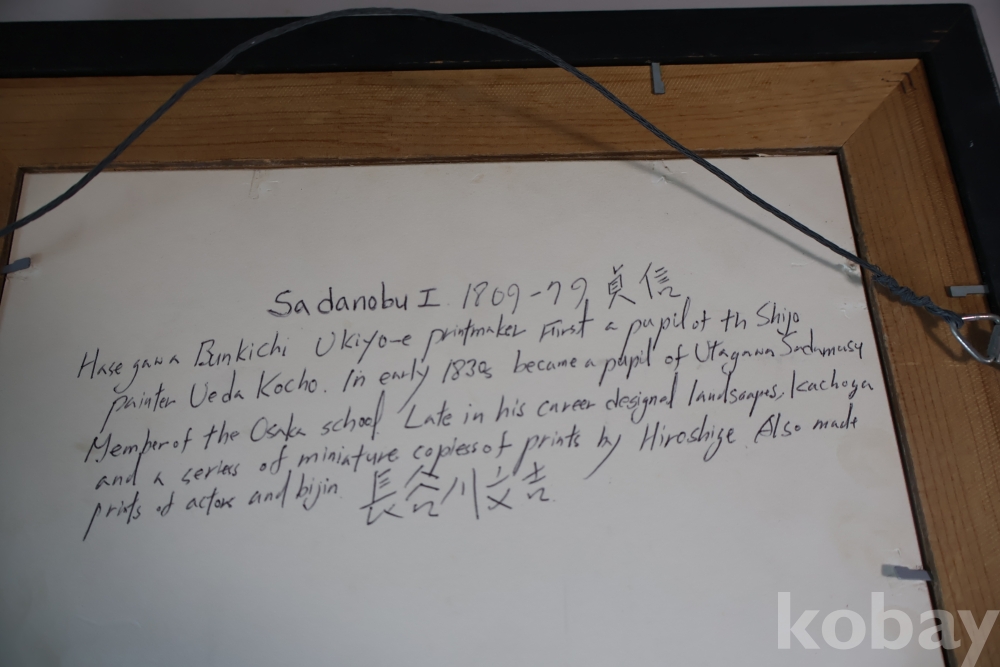 Sadanobu I 1809-79 貞信
Hasegawa Bunkichi Ukiyo-e printmaker First a pupil of th Shijo
painter Ueda Kocho. In early 1830s became a pupil of Utagawa Sadamasu
Member of the Osaka school. Late in his career designed landscapes, Kachoga
and a series of miniature copies of prints by Hiroshige. Also made
prints of actors and bijin 長谷川文吉
kobay